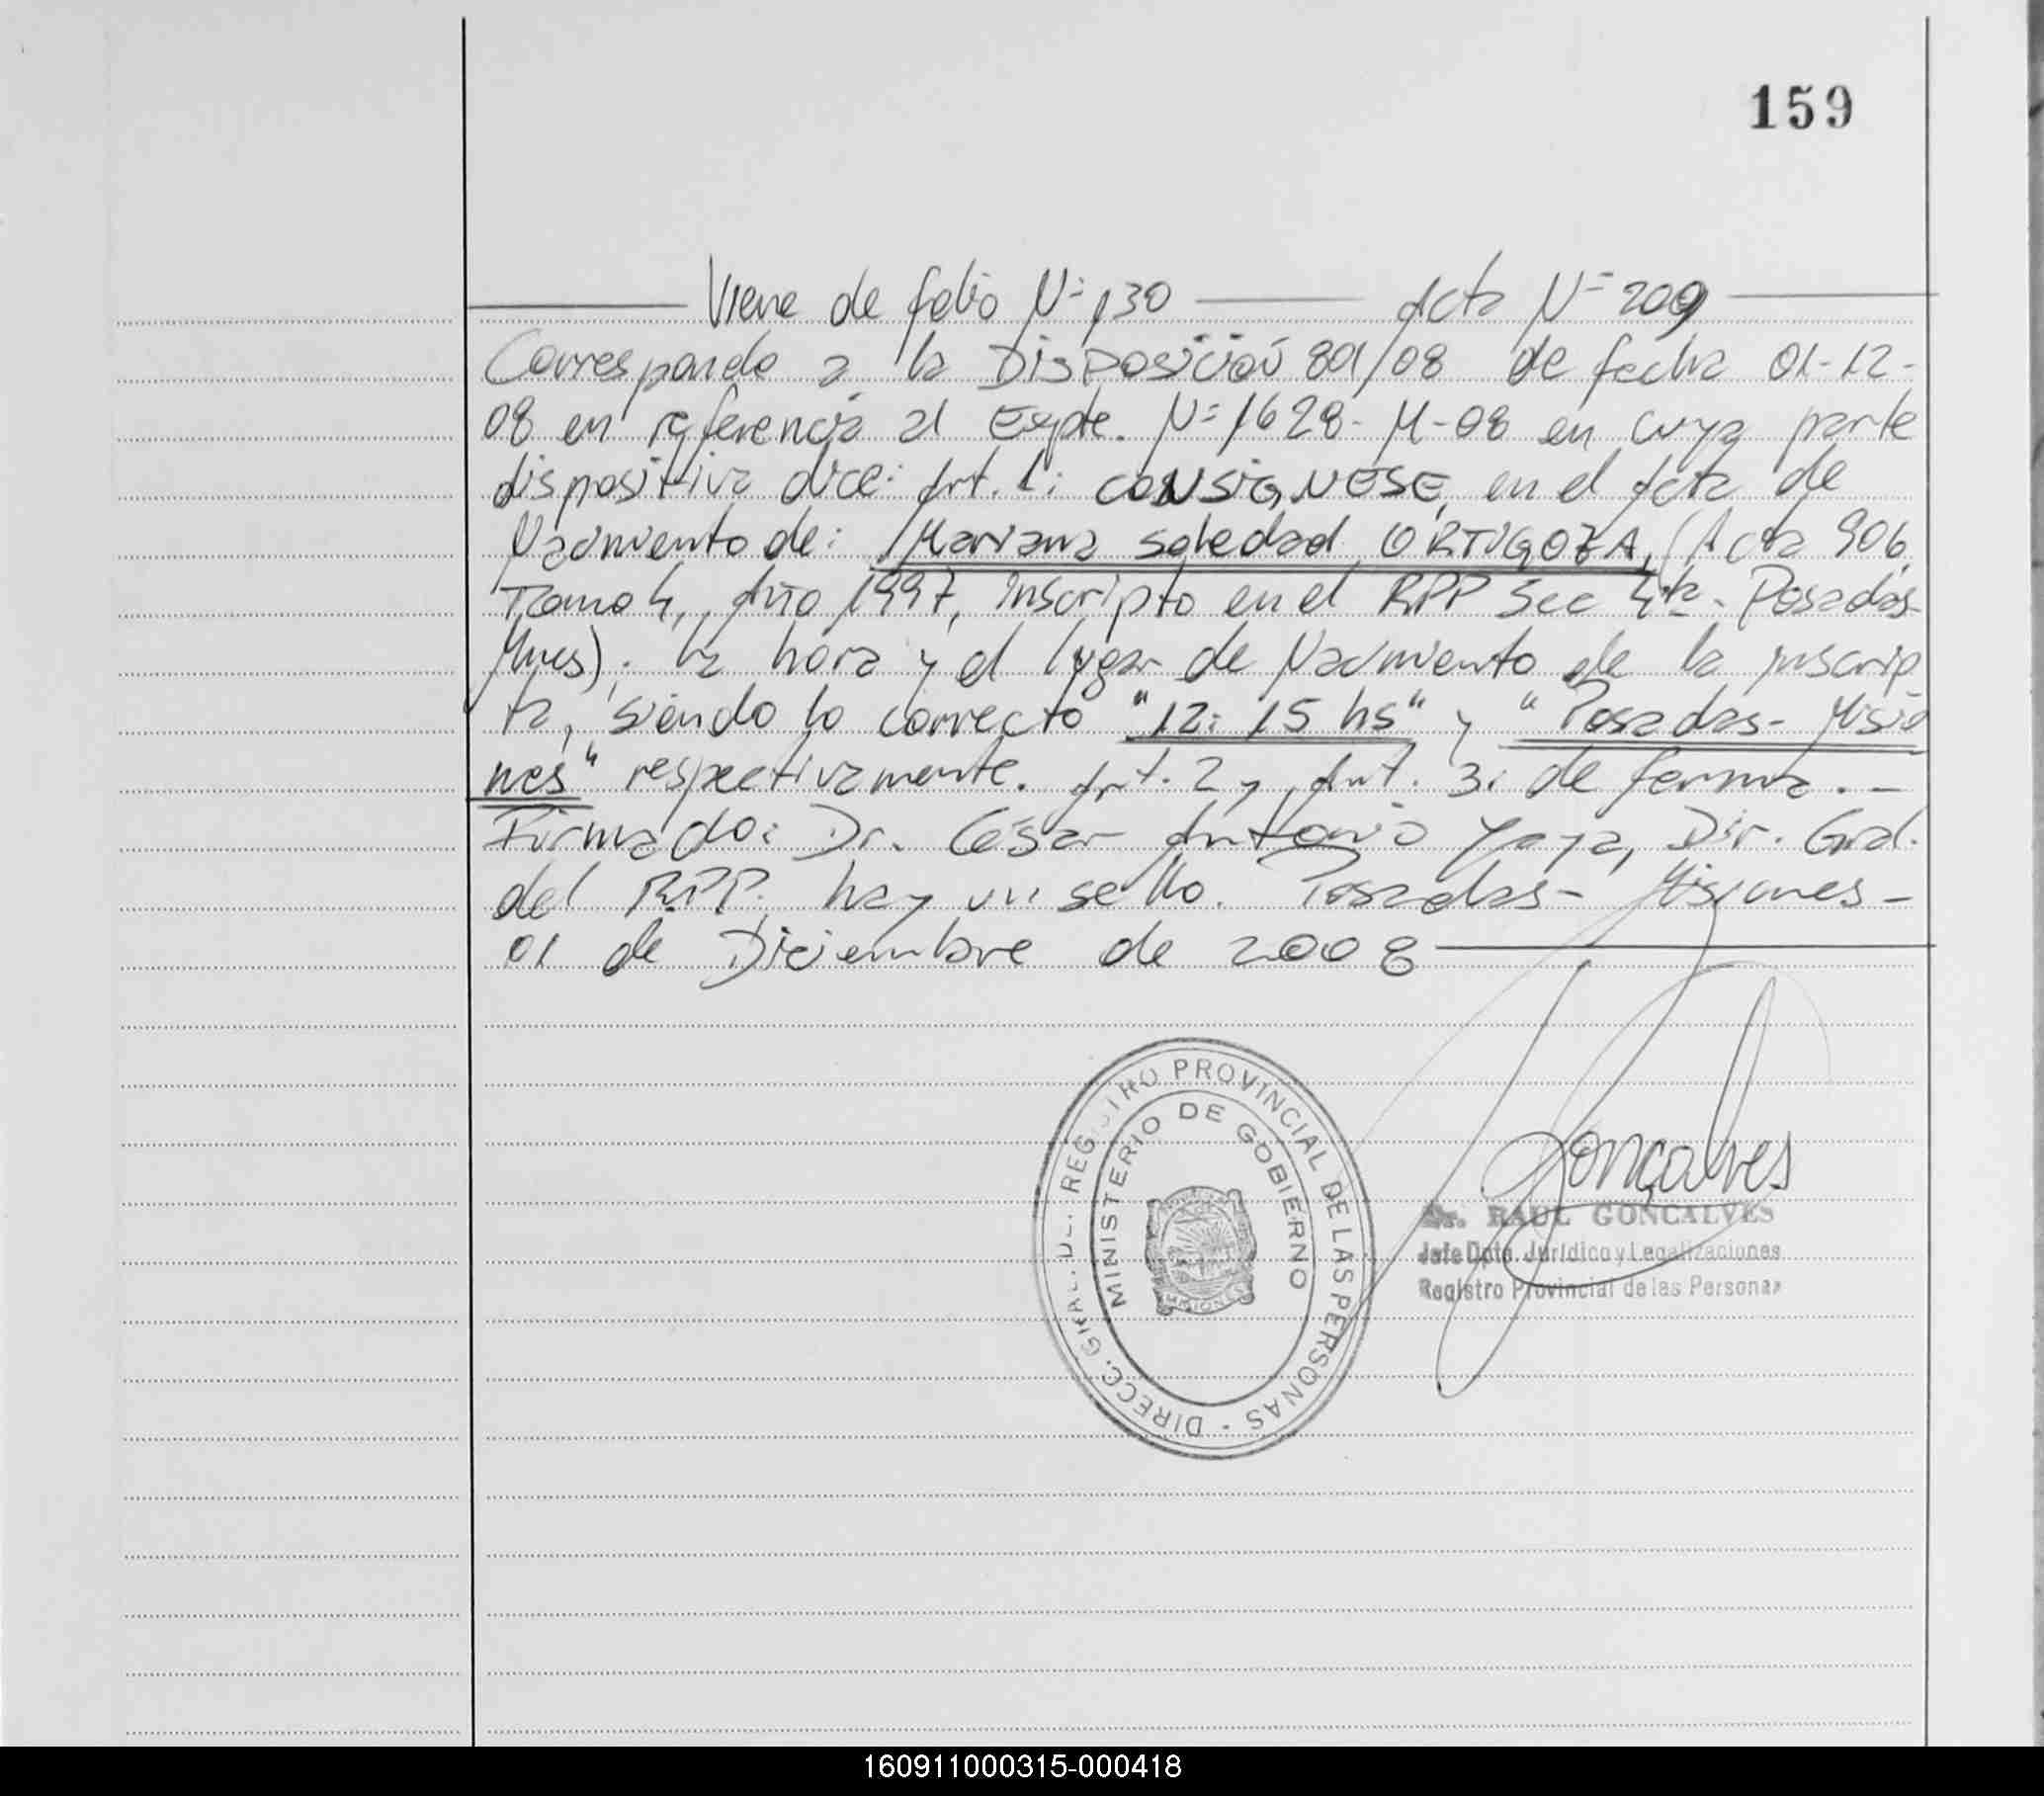 159
Viene de folio Nº 130 Acta Nº 209
Corresponde a la Disposición 801/08 de fecha 01-12-
08 en referencia al Expte. Nº 1628-M-08 en cuya parte
dispositiva dice: Art. 1: CONSIGNESE, en el Acta de
Nacimiento de: Mariana Soledad ORTIGOZA, (Acta 906,
Tomo 4, Año 1997, inscripto en el RPP Sec 4ta - Posadas-
Mnes), la hora y el lugar de Nacimiento de la inscrip
ta, siendo lo correcto "12:15 hs" y "Posadas- Misio
nes" respectivamente. Art. 2 y Art. 3: de forma. -
Firmado: Dr. César Antonio Yaya, Dir. Gral.
del RPP. hay un sello. Posadas- Misiones-
01 de Diciembre de 2008
DIRECC. GRAL. DEL REGISTRO PROVINCIAL DE LAS PERSONAS -
MINISTERIO DE GOBIERNO
MISIONES
Gonçalves
Dr. RAUL GONCALVES
Jefe Dpto. Jurídico y Legalizaciones
Registro Provincial de las Personas
160911000315-000418